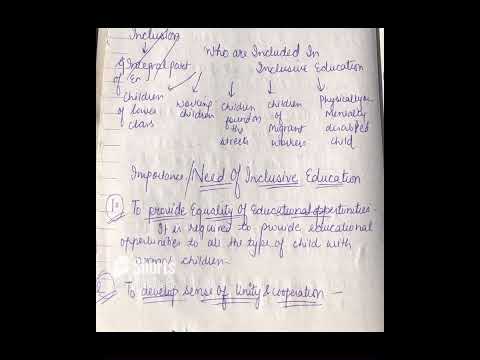 Inclusion
Who are Included In
Integral part
Inclusive Education
of En
Children of lower class
Working children
Children found on the streets
Children of Migrant workers
Physically or Mentally disabled child
Importance/Need Of Inclusive Education
1. To provide Equality Of Educational oppertunities -
It is required to provide educational
opportunities to all the type of child with
normal children.
Shorts
2. To develop sense Of Unity & cooperation -